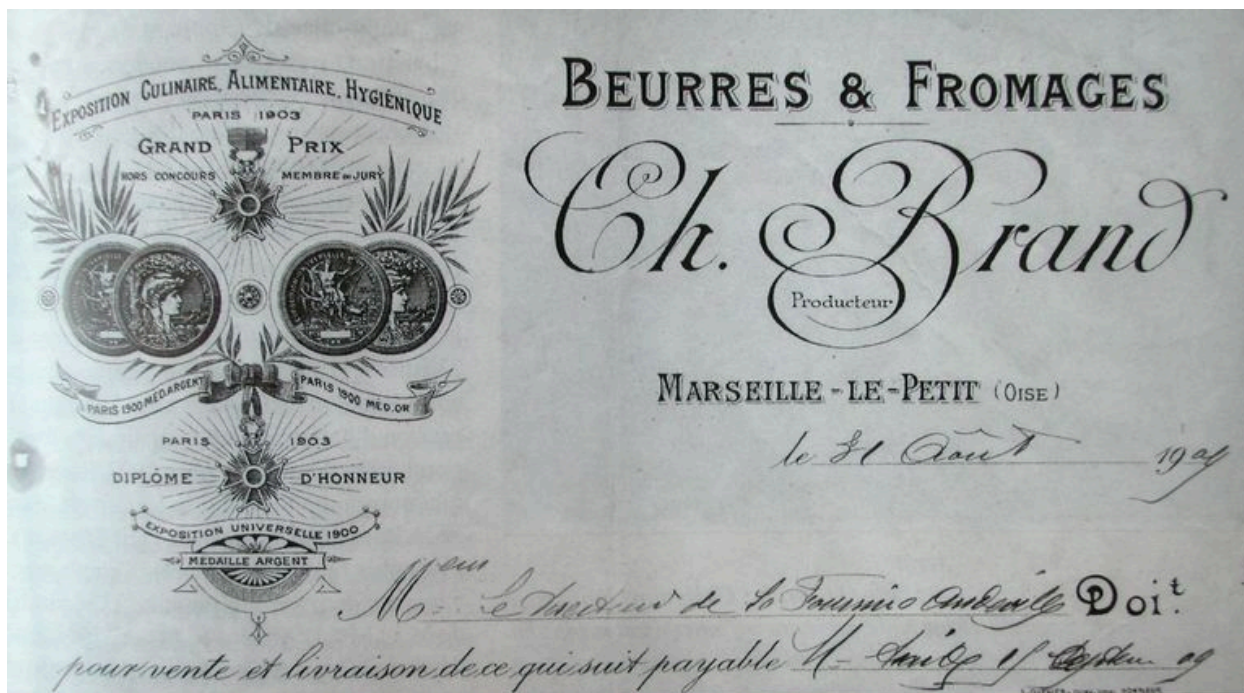 EXPOSITION CULINAIRE, ALIMENTAIRE, HYGIÉNIQUE
PARIS 1903
GRAND PRIX
HORS CONCOURS MEMBRE DU JURY
PARIS 1900 MED. ARGENT PARIS 1900 MED. OR
PARIS 1903
DIPLÔME D'HONNEUR
EXPOSITION UNIVERSELLE 1900
MEDAILLE ARGENT
BEURRES & FROMAGES
Ch. Brand
Producteur
MARSEILLE-LE-PETIT (OISE)
le 31 Août 1909
M de Doit.
pour vente et livraison de ce qui suit payable 09